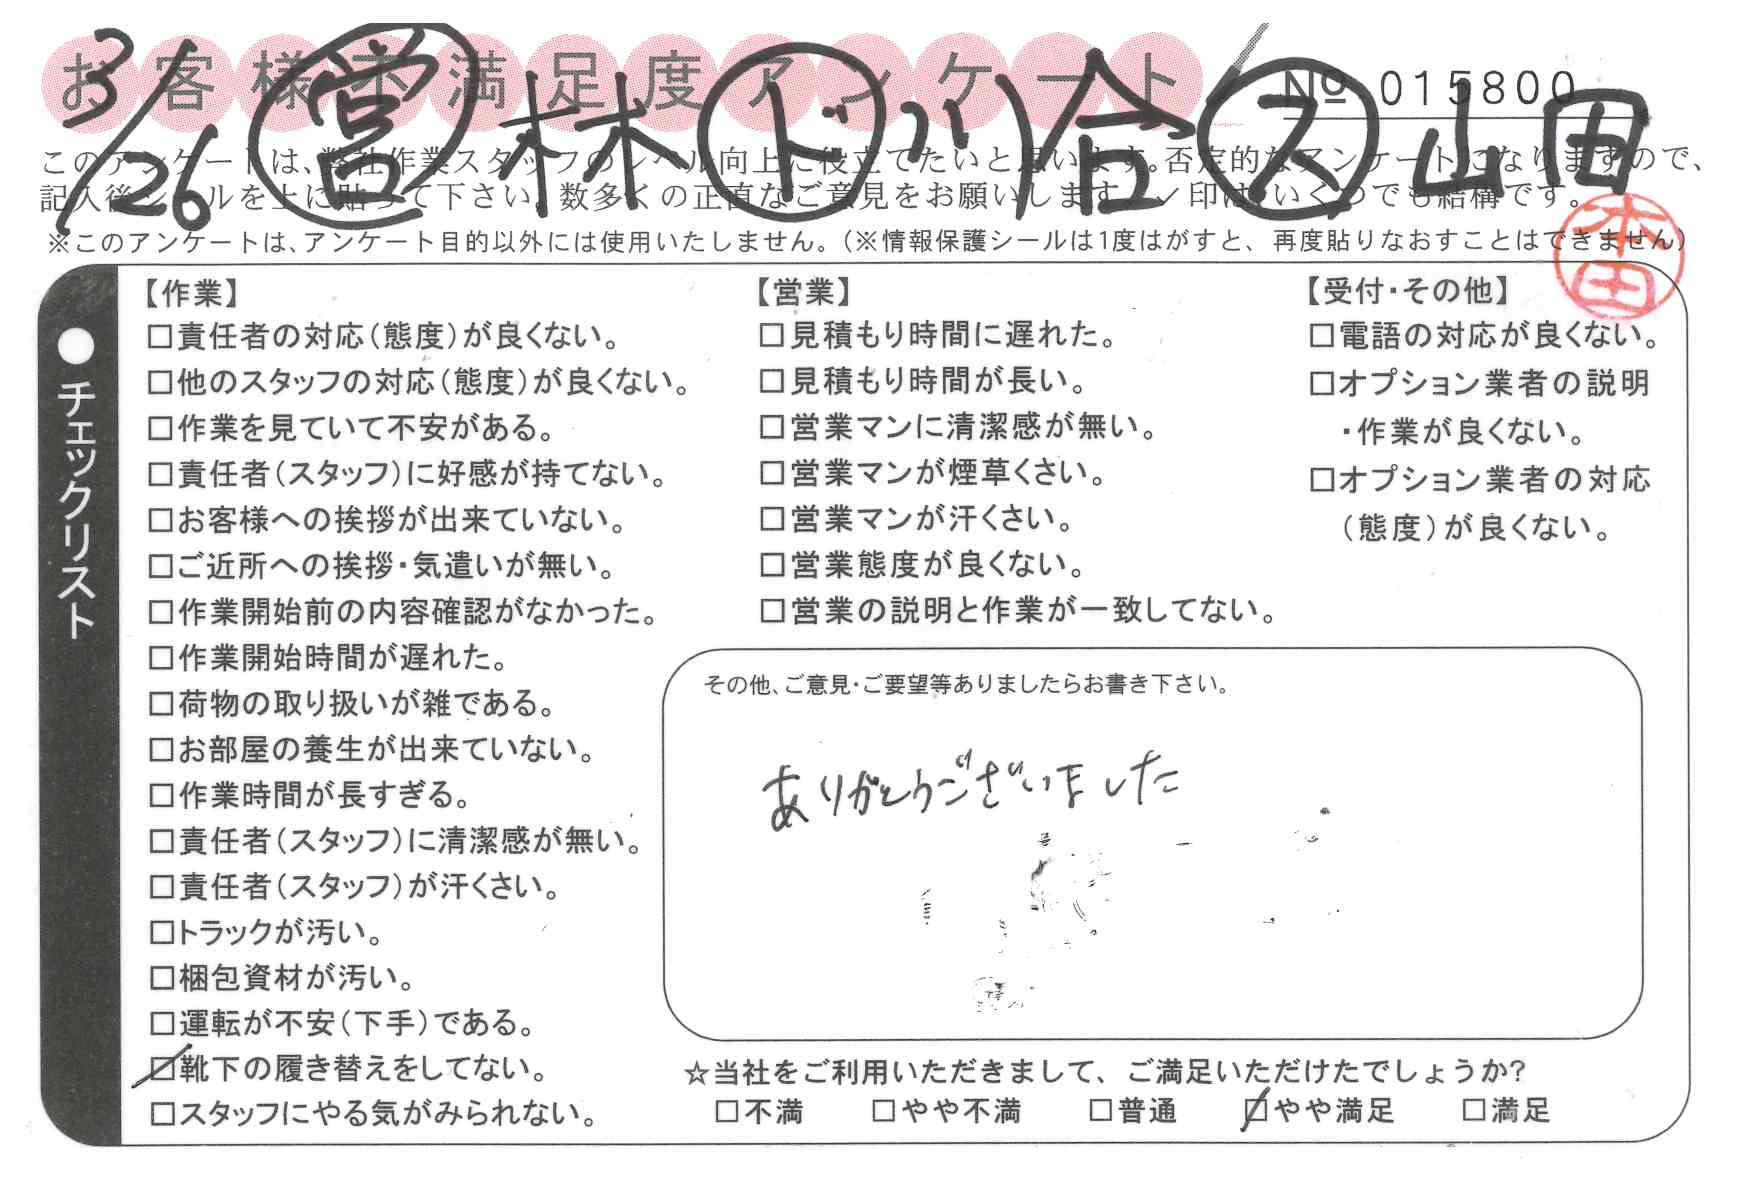 お客様不満足度アンケート
№ 015800
3/26 営 林 ド 川合 ス 山田
このアンケートは、弊社作業スタッフのレベル向上に役立てたいと思います。否定的なアンケートになりますので、
記入後シールを上に貼って下さい。数多くの正直なご意見をお願いします。✓印はいくつでも結構です。
※このアンケートは、アンケート目的以外には使用いたしません。(※情報保護シールは1度はがすと、再度貼りなおすことはできません)
本田
●チェックリスト
【作業】
□責任者の対応(態度)が良くない。
□他のスタッフの対応(態度)が良くない。
□作業を見ていて不安がある。
□責任者(スタッフ)に好感が持てない。
□お客様への挨拶が出来ていない。
□ご近所への挨拶・気遣いが無い。
□作業開始前の内容確認がなかった。
□作業開始時間が遅れた。
□荷物の取り扱いが雑である。
□お部屋の養生が出来ていない。
□作業時間が長すぎる。
□責任者(スタッフ)に清潔感が無い。
□責任者(スタッフ)が汗くさい。
□トラックが汚い。
□梱包資材が汚い。
□運転が不安(下手)である。
☑靴下の履き替えをしてない。
□スタッフにやる気がみられない。
【営業】
□見積もり時間に遅れた。
□見積もり時間が長い。
□営業マンに清潔感が無い。
□営業マンが煙草くさい。
□営業マンが汗くさい。
□営業態度が良くない。
□営業の説明と作業が一致してない。
【受付・その他】
□電話の対応が良くない。
□オプション業者の説明
・作業が良くない。
□オプション業者の対応
(態度)が良くない。
その他、ご意見・ご要望等ありましたらお書き下さい。
ありがとうございました
☆当社をご利用いただきまして、ご満足いただけたでしょうか?
□不満 □やや不満 □普通 ☑やや満足 □満足